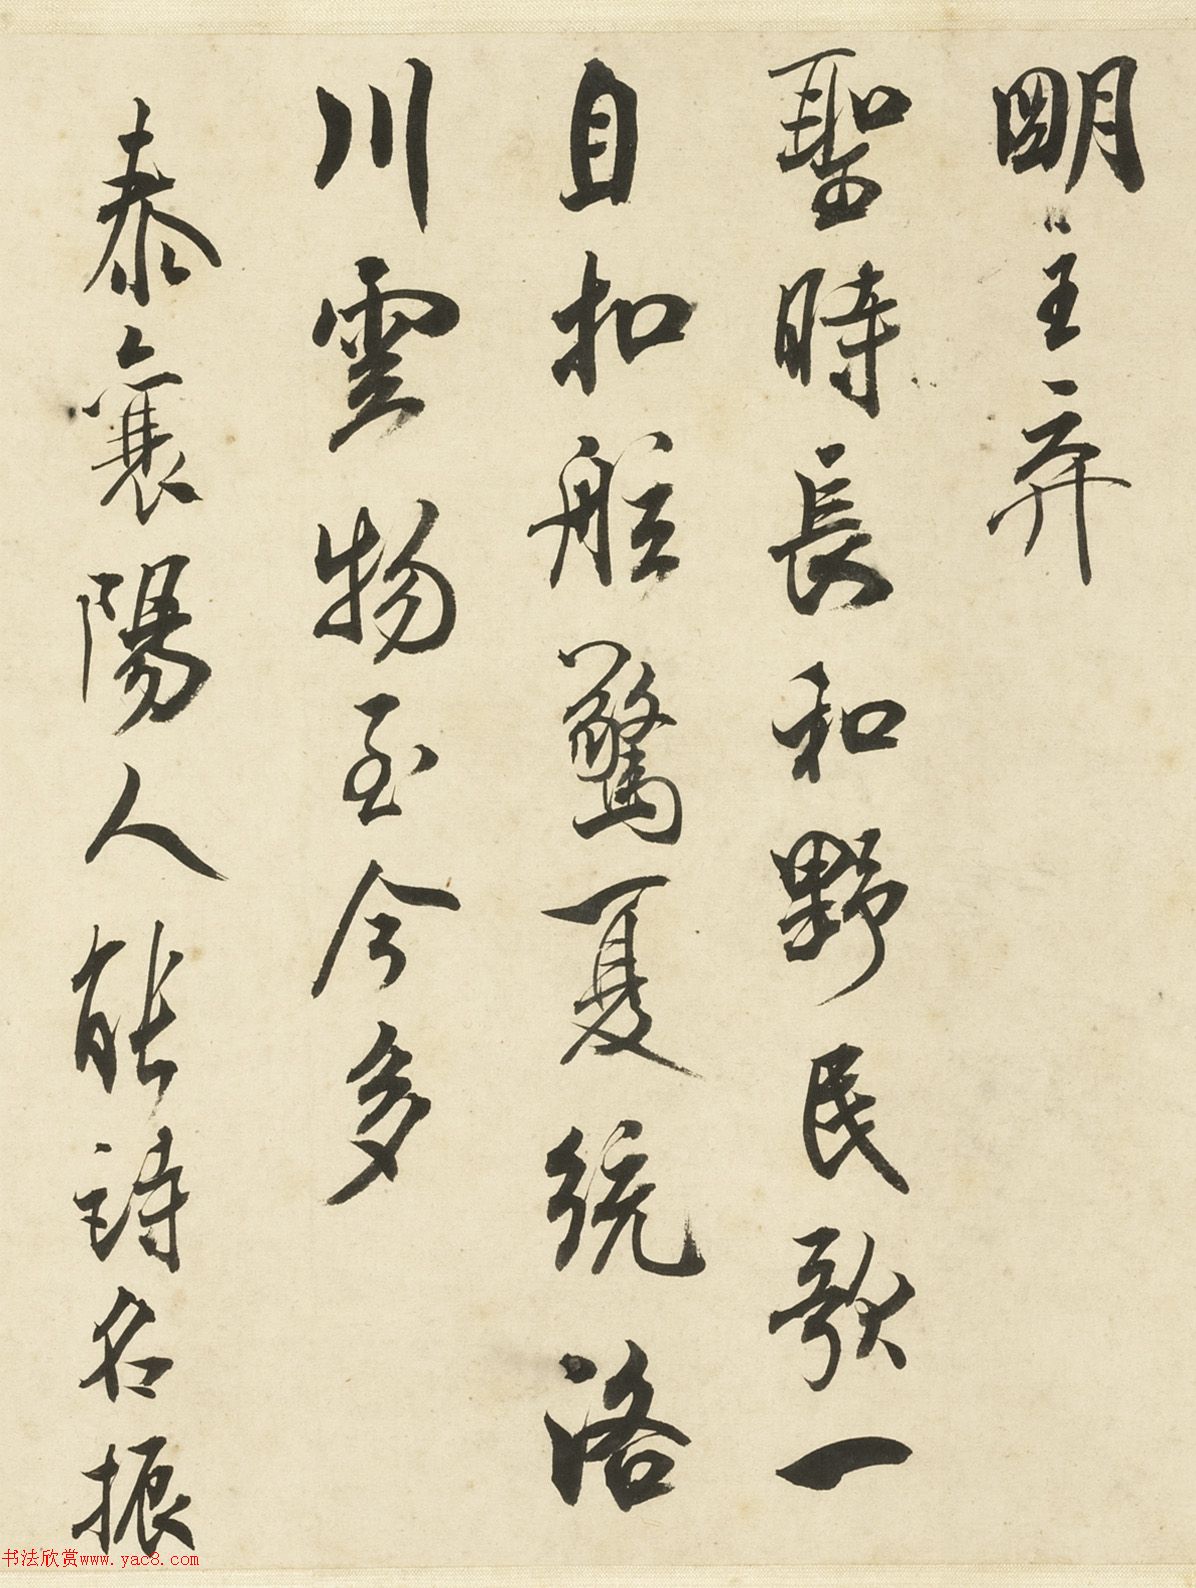 明主弃
聖時長和野民歌一
自扣舷驚夏統洛
川雲物至今多
泰襄陽人能詩名振
书法欣赏www.yac8.com